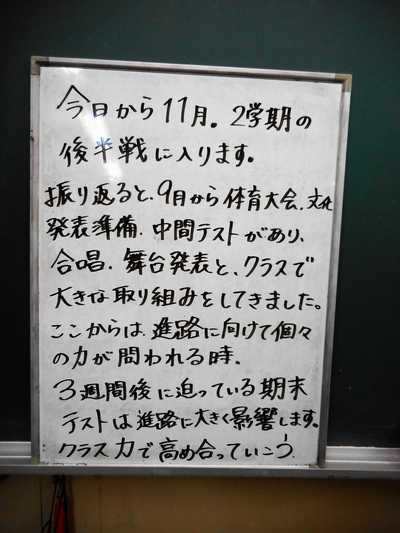 今日から11月。2学期の
後半戦に入ります。
振り返ると、9月から体育大会、文化
発表準備、中間テストがあり、
合唱、舞台発表と、クラスで
大きな取り組みをしてきました。
ここからは、進路に向けて個々
の力が問われる時。
3週間後に迫っている期末
テストは進路に大きく影響します。
クラス力で高め合っていこう